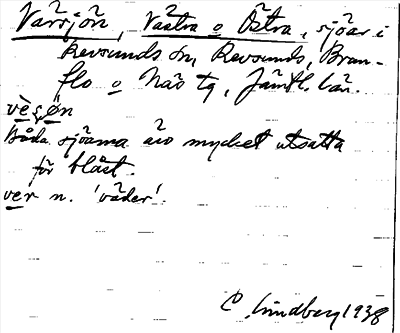 Värsjön, Västra o Östra, sjöar i
Revsunds sn, Revsunds, Brun-
flo o Näs tg, Jämtl. län.
vèsʂön
Båda sjöarna äro mycket utsatta
för blåst.
ver n. 'väder'.
C. Lindberg 1938